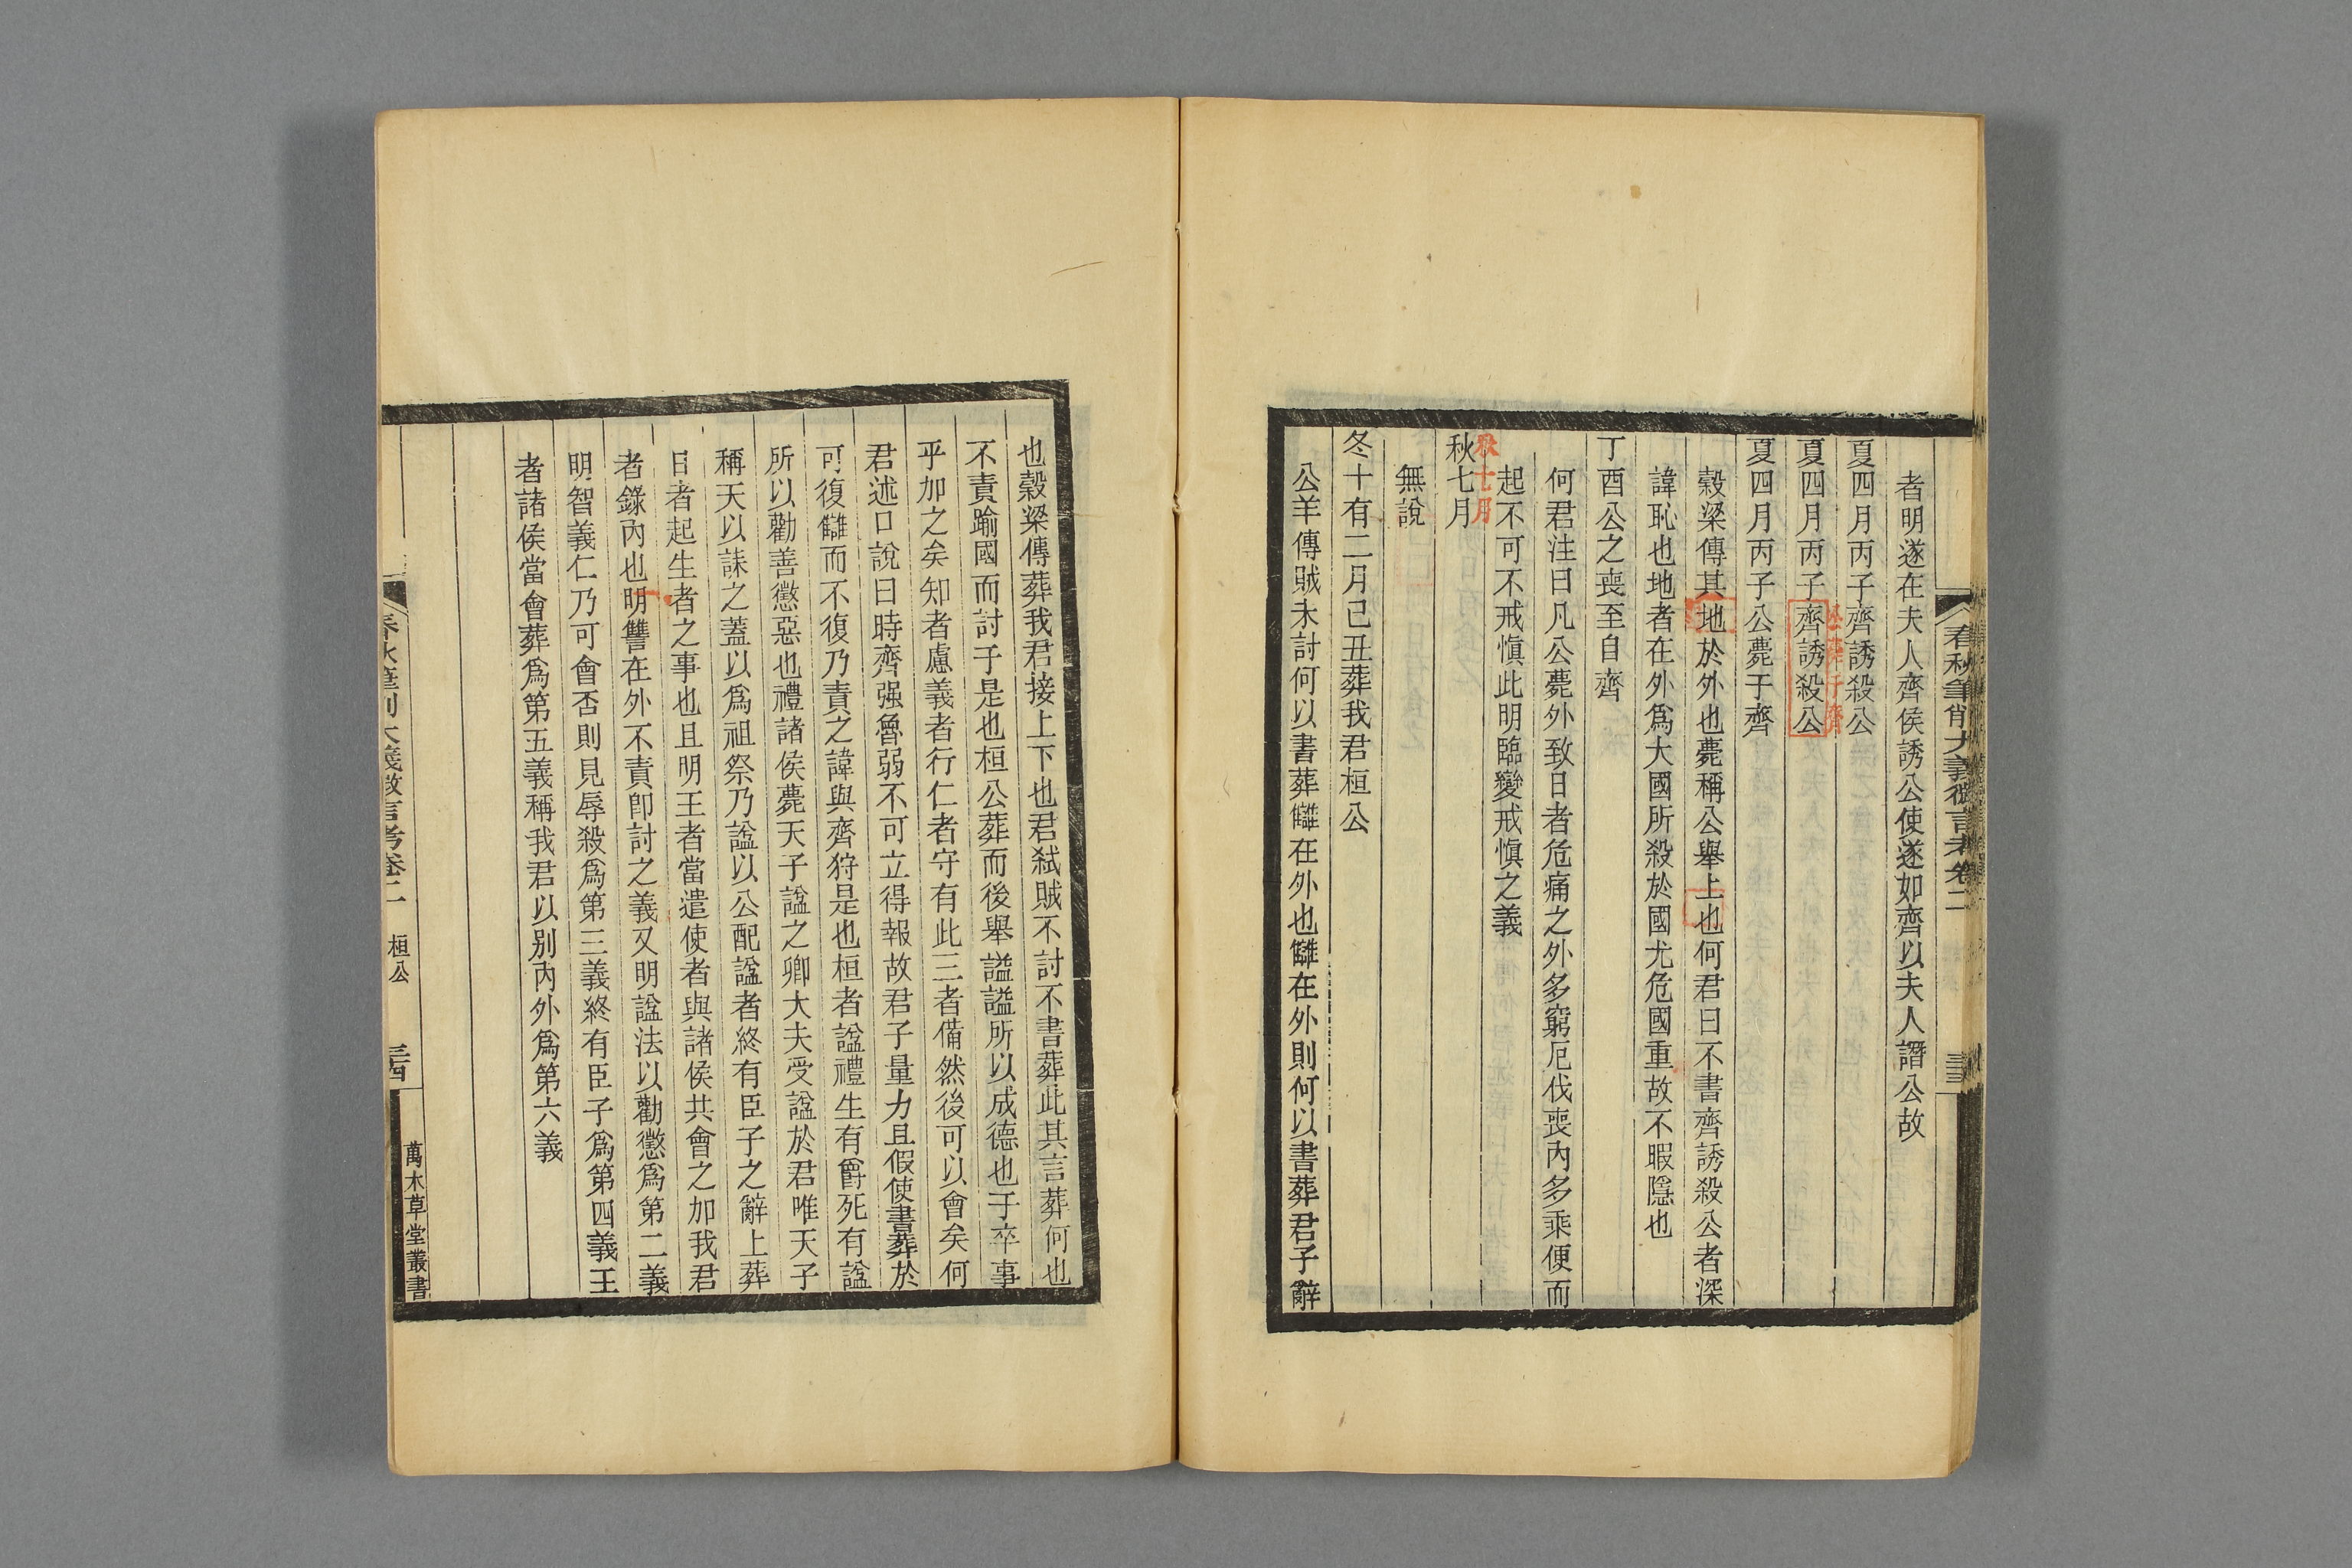 春秋筆削大義微言考卷二
三三
者明遂在夫人齊侯誘公使遂如齊以夫人譖公故
夏四月丙子齊誘殺公
公薨于齊
夏四月丙子齊誘殺公
夏四月丙子公薨于齊
穀梁傳其地於外也薨稱公舉上也何君曰不書齊誘殺公者深
諱恥也地者在外爲大國所殺於國尤危國重故不暇隱也
丁酉公之喪至自齊
何君注曰凡公薨外致日者危痛之外多窮厄伐喪內多乘便而
起不可不戒愼此明臨變戒愼之義
秋七月
秋七月
無說
冬十有二月己丑葬我君桓公
公羊傳賊未討何以書葬讎在外也讎在外則何以書葬君子辭
也穀梁傳葬我君接上下也君弑賊不討不書葬此其言葬何也
不責踰國而討于是也桓公葬而後舉謚謚所以成德也于卒事
乎加之矣知者慮義者行仁者守有此三者備然後可以會矣何
君述口說曰時齊强魯弱不可立得報故君子量力且假使書葬於
可復讎而不復乃責之諱與齊狩是也桓者諡禮生有爵死有諡
所以勸善懲惡也禮諸侯薨天子諡之卿大夫受諡於君唯天子
稱天以誄之蓋以爲祖祭乃諡以公配諡者終有臣子之辭上葬
日者起生者之事也且明王者當遣使者與諸侯共會之加我君
者錄內也明讐在外不責卽討之義又明諡法以勸懲爲第二義
明智義仁乃可會否則見辱殺爲第三義終有臣子爲第四義王
者諸侯當會葬爲第五義稱我君以別內外爲第六義
春秋筆削大義微言考卷二 桓公
三四
萬木草堂叢書